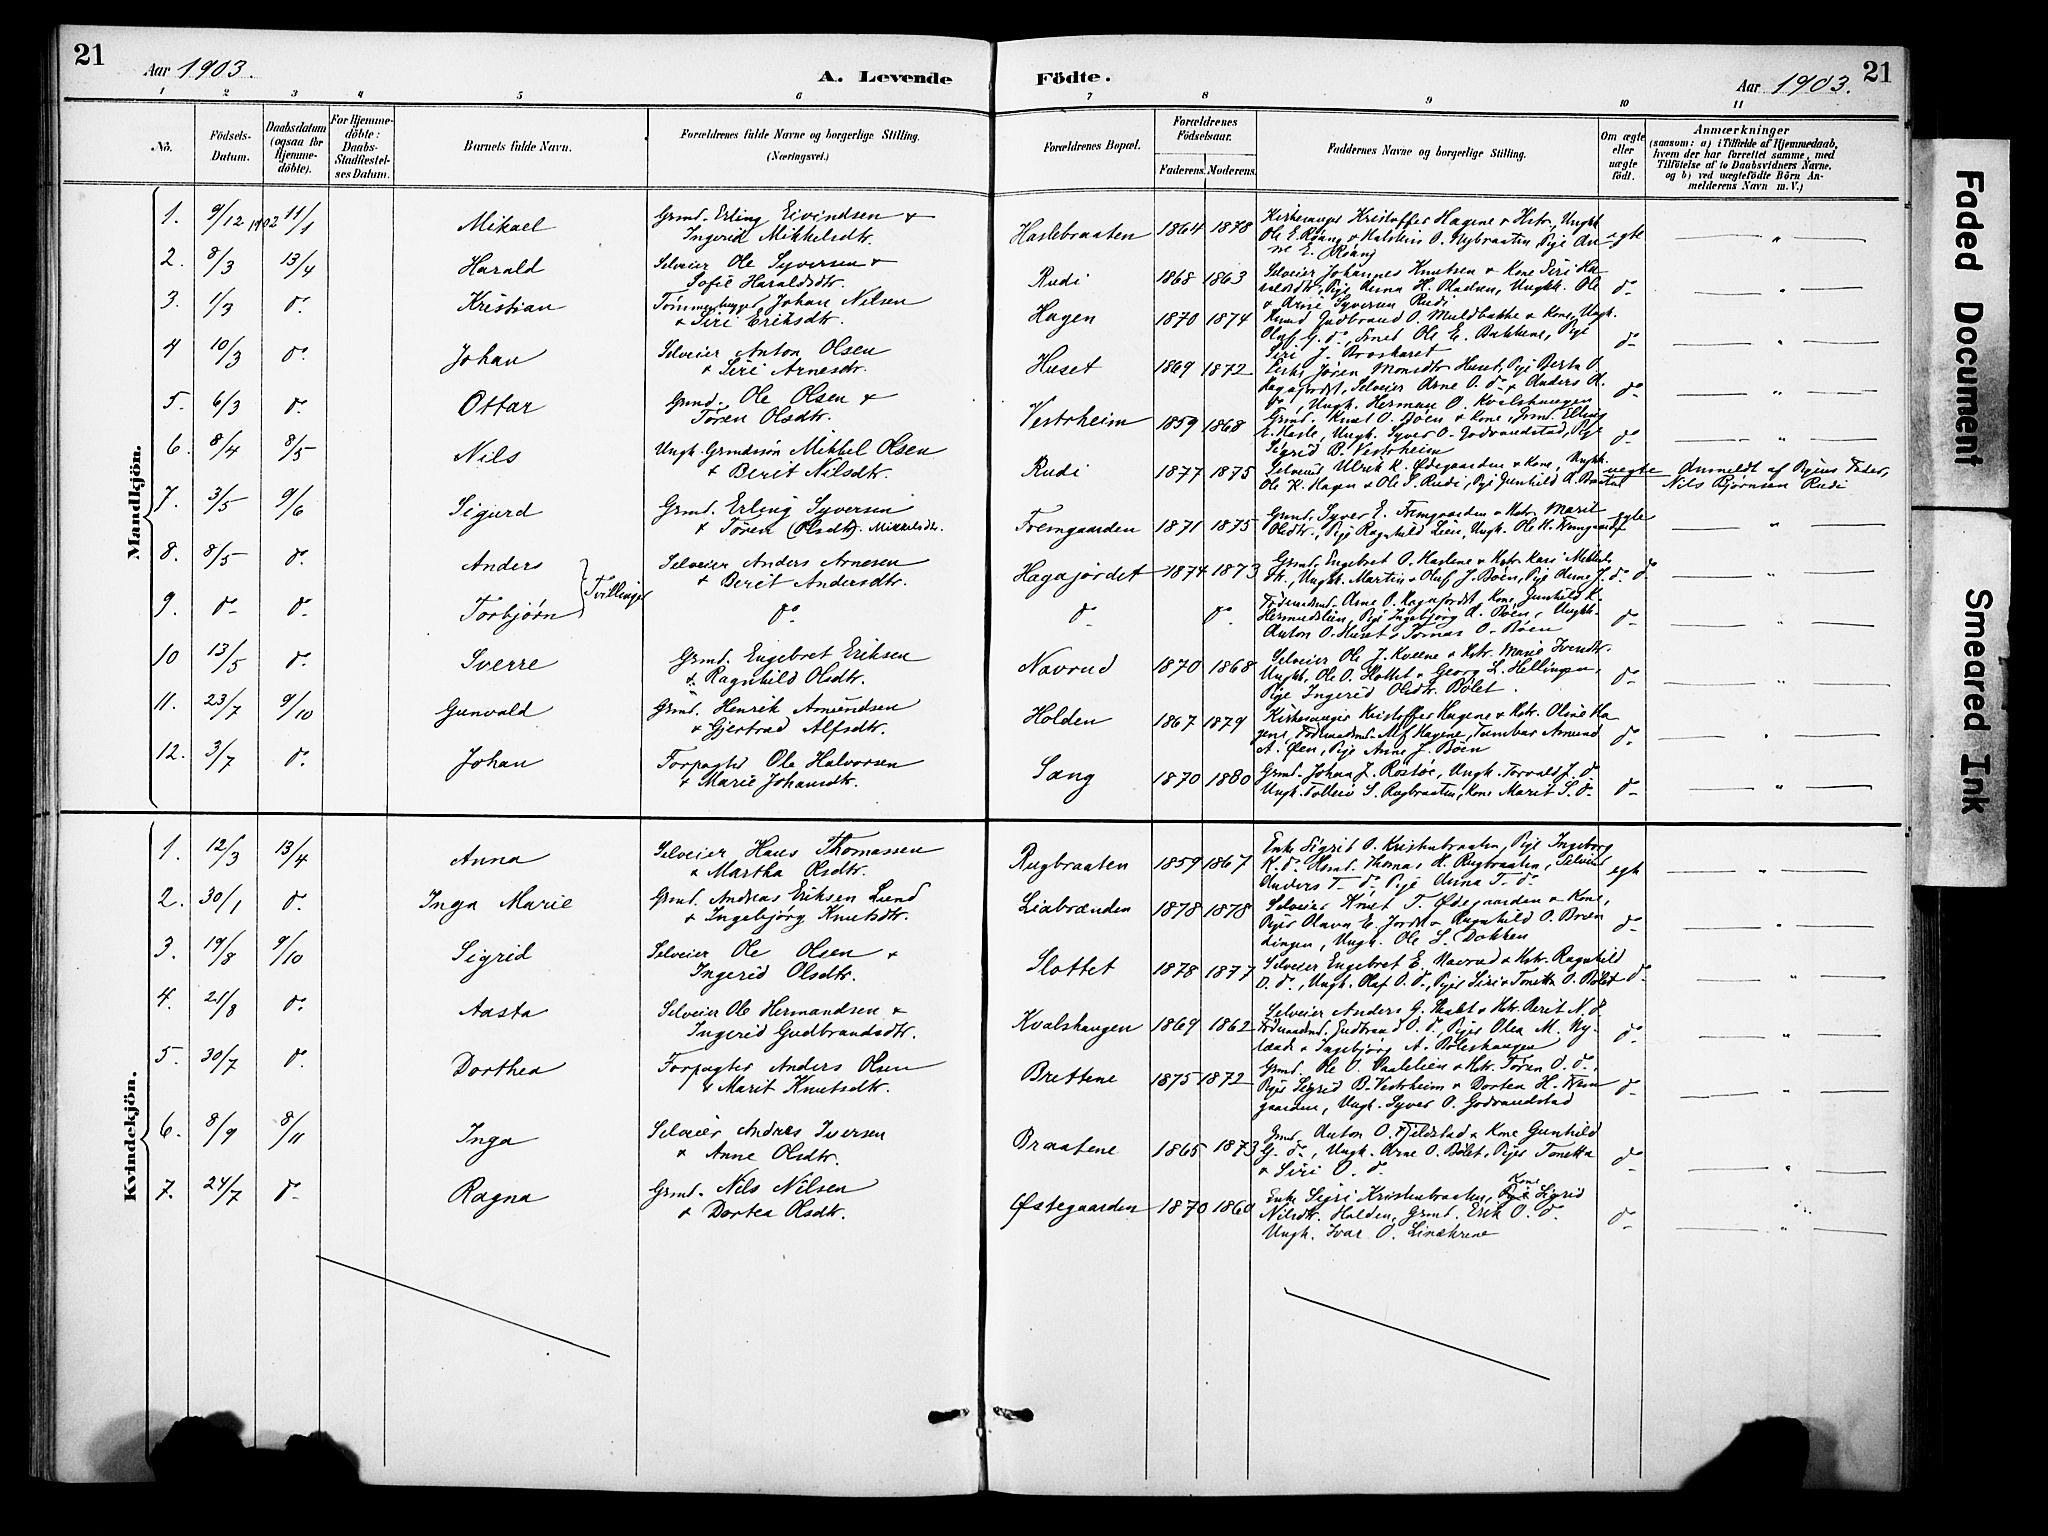 21
Aar 1903.
A. Levende Födte.
Aar 1903.
21
1 2 3 4 5 6 7 8 9 10 11
No.
Födsels-Datum.
Daabsdatum (ogsaa for Hjemme-döbte).
For Hjemme-döbte: Daabs-Stadfæstel-ses Datum.
Barnets fulde Navn.
Forældrenes fulde Navne og borgerlige Stilling. (Næringsvei.)
Forældrenes Bopæl.
Forældrenes Födselsaar.
Faderens. Moderens.
Faddernes Navne og borgerlige Stilling.
Om ægte eller uægte födt.
Anmærkninger
(saasom: a) i Tilfælde af Hjemmedaab, hvem der har forrettet samme, med Tilföielse af to Daabsvidners Navne, og b) ved uægtefödte Börn An-melderens Navn m. V.)
Mandkjön.
1. 9/12 1902 11/1 Mikael Grmd. Erling Eivindsen & Ingerid Mikkelsdtr. Haslebraaten 1864 1878 Kirkesanger Kristoffer Hagene & Hstr., Ungk. Ole E. & Halstein O. Nybraaten, Pige An-ne E. egte
2. 8/3 13/4 Harald Selveier Ole Syversen & Sofie Haraldsdtr. Rudi 1868 1863 Selveier Johannes Knutsen & Kone Siri Ha-raldsdtr., Pige Anna H. Ungk. Ole & Arne Syversen Rudi do
3. 1/3 do. Kristian Tømmerhugger Johan Nilsen & Siri Eriksdtr. Hagen 1870 1874 Gudbrand O. Muldbakke & Kone, Ungk. Olaf G. do, Ole E. Bakkene, Pige Siri J. do
4 10/3 do. Johan Selveier Anton Olsen & Siri Arnesdtr. Huset 1869 1872 Enke Jøren Monsdtr. Huset, Pige Berta O. Hagajordet, Selveier Arne O. do & Anders A. do, Ungk. Herman O. Kvalshaugen do
5. 6/3 do. Ottar Grmd. Ole Olsen & Tøren Olsdtr. Vestrheim 1859 1868 Grmd. Knut O. Bøen & Kone, Grmd. Elling E. Hasle, Ungk. Syver O. Godvandstad, Pige Sigrid B. Vestrheim do
6. 8/4 8/5 Nils Ungk. Grmdssøn Mikkel Olsen & Berit Nilsdtr. Rudi 1877 1875 Selveier Ulrik K. Ødegaarden & Kone, Ungk. Ole K. Hagen & Ole S. Rudi, Pige Gunhild A. uegte Anmeldt af Pigens Fader, Nils Bjørnsen Rudi
7. 3/5 9/6 Sigurd Grmd. Erling Syversen & Tøren (Olsdtr). Mikkelsdtr. Fremgaarden 1871 1875 Grmd. Syver E. Fremgaarden & Hstr. Marit Olsdtr., Pige Ragnhild Lien, Ungk. Ole K. Fremgaarden egte
8. 8/5 do. Anders Selveier Anders Arnesen & Berit Andersdtr. Hagajordet 1874 1873 Grmd. Engebret O. Haslene & Hstr. Kari Mikkels-dtr., Ungk. Martin & Olaf J. Bøen, Pige Anne J. do. do.
Tvillinger
9. do do. Torbjørn do do do. Føderaadsmd. Arne O. Hagajordet, Kone, Gunhild K. Hermundslien, Pige Ingebjørg A. Bøen, Ungk. Anton O. Huset & Tomas O. Bøen do
10 13/5 do. Sverre Grmd. Engebret Eriksen & Ragnhild Olsdtr. Navrud 1870 1868 Selveier Ole J. Kveene & Hstr. Marie Ivensdtr. Ungk. Ole O. Slottet & Georg L. Hellingen, Pige Ingerid Olsdtr. Bølet. do
11. 23/7 9/10 Gunvald Grmd. Henrik Amundsen & Gjertrud Alfsdtr. Holden 1867 1879 Kirkesanger Kristoffer Hagene & Hstr. Oline Ha-gene, Føderaadsmd. Alf Hagene, Tømbm Amund A. Øen, Pige Anne J. Bøen do
12. 3/7 do. Johan Forpagter Ole Halvorsen & Marie Johansdtr. Sang 1870 1880 Grmd. Johan J. Rostøe, Ungk. Torvald J. do Ungk. Tollev S. Rugbraaten, Kone Marit S. do. do
Kvindekjön.
1. 12/3 13/4 Anna Selveier Hans Thomassen & Martha Olsdtr. Rugbraaten 1859 1867 Enke Sigrid O. Kristenbraaten, Pige Ingeborg K. do, Thomas H. Rugbraaten, Selveier Anders T. do Pige Anna T. do. egte
2. 30/1 do. Inga Marie Grmd. Andreas Eriksen Lund & Ingebjørg Knutsdtr. Liabrænden 1878 1878 Selveier Knut T. Ødegaarden & Kone, Piger Olava E. Jordet & Ragnhild O. Bræn-dingen, Ungk. Ole S. Dokken do
3. 19/8 9/10 Sigrid Selveier Ole Olsen & Ingerid Olsdtr. Slottet 1878 1877 Selveier Engebret E. Navrud & Hstr. Ragnhild O. do., Ungk. Olaf O. do, Piger Siri & Tonetta O. Bølet do
4. 21/8 do. Aasta Selveier Ole Hermandsen & Ingerid Gudbrandsdtr. Kvalshaugen 1869 1862 Selveier Anders G. & Hstr. Berit N. do Føderaadsmd. Gudbrand O. do, Piger Olea M. Ny-laand & Ingebjørg A. Bøleshaugen do
5. 30/7 do. Dorthea Forpagter Anders Olsen & Marit Knutsdtr. Brettene 1875 1872 Grmd. Ole O. Vaalelien & Hstr. Tøren O. do., Piger Sigrid B. Vestrheim & Dortea H. Frem-gaarden, Ungk. Syver O. Godvandstad do
6. 8/9 8/11 Inga Selveier Andres Iversen & Anne Olsdtr. Braatene 1865 1873 Grmd. Anton O. Fjeldstad & Kone Gunhild G. do, Ungk. Arne O. Bølet, Piger Tonetta & Siri O. do. do
7. 24/7 do Ragna Grmd. Nils Nilsen & Dortea Olsdtr. Østegaarden 1870 1860 Enke Sigri Kristenbraaten, Kone Sigrid Nilsdtr. Holden, Grmd. Erik O. do. Ungk. Ivar O. Linækrene do
Faded Document
Smeared Ink